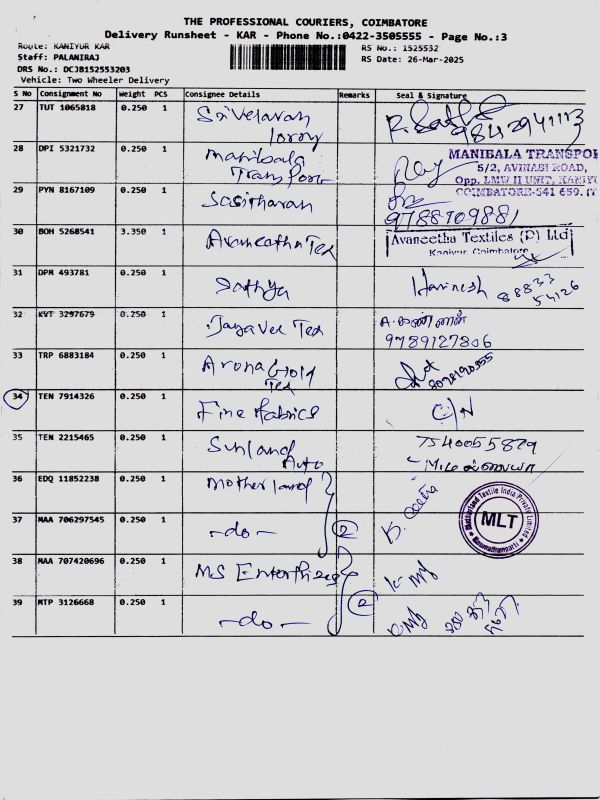 THE PROFESSIONAL COURIERS, COIMBATORE
Delivery Runsheet - KAR - Phone No.:0422-3505555 - Page No.:3
Route: KANIYUR KAR
RS No.: 1525532
Staff: PALANIRAJ
RS Date: 26-Mar-2025
DRS No.: DCJB152553203
Vehicle: Two Wheeler Delivery
S No Consignment No Weight PCS Consignee Details Remarks Seal & Signature
27 TUT 1065818 0.250 1 Sri Velavan lorry 9842941113
28 DPI 5321732 0.250 1 Manibala Transport
MANIBALA TRANSPO
5/2, AVINASI ROAD,
Opp. LMW II UNIT, KANIY
COIMBATORE-641 659. (T
29 PYN 8167109 0.250 1 Sasitharan 9788709881
30 BOH 5268541 3.350 1 Avaneetha Tex
Avaneetha Textiles (P) Ltd
Kaniyur, Coimbatore
31 DPM 493781 0.250 1 Sathya Harinesh 88833 54126
32 KVT 3297679 0.250 1 Jayavee Tex A. கண்ணன்
9789127806
33 TRP 6883184 0.250 1 Aruna Gold Tex
34 TEN 7914326 0.250 1 Fine fabrics C/N
35 TEN 2215465 0.250 1 Sunland Auto 7540055829
36 EDQ 11852238 0.250 1 Motherland
37 MAA 706297545 0.250 1 -do- 2 B. Geetha
Motherland Textile India Private Limited
MLT
38 MAA 707420696 0.250 1 MS Enterprises
39 MTP 3126668 0.250 1 -do- 2